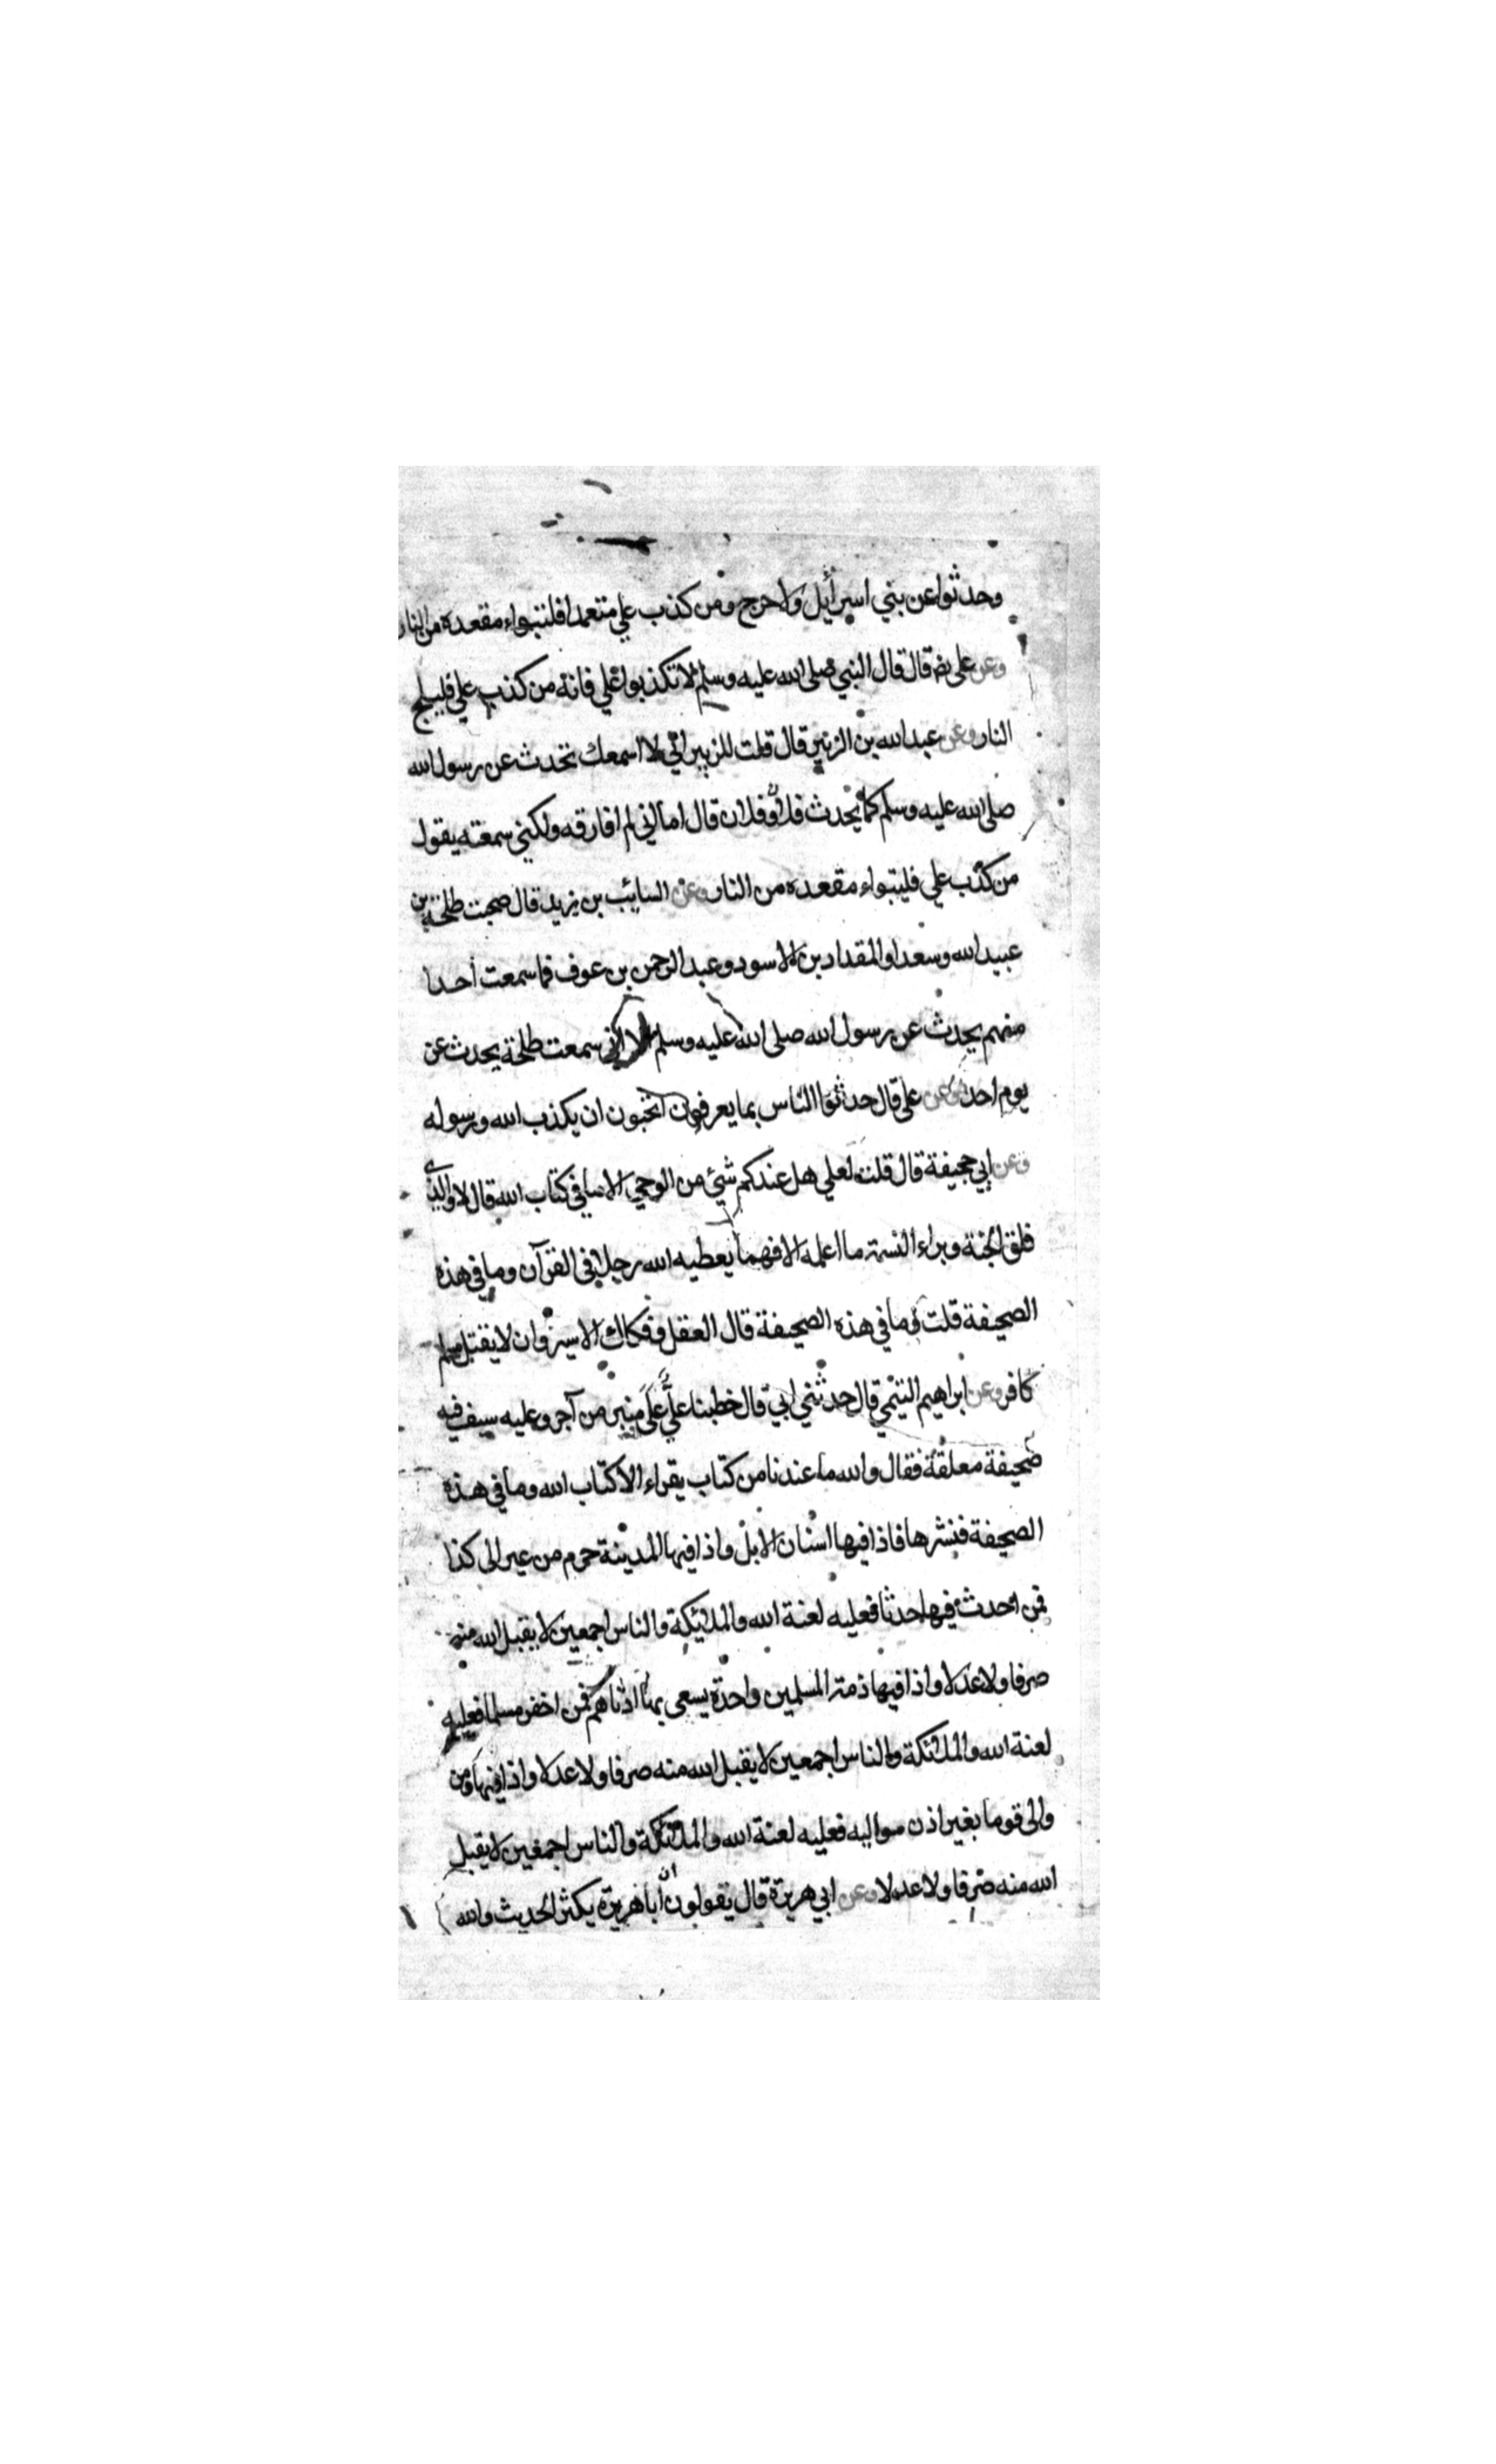 وحدثوا عن بني اسرائيل ولا حرج ومن كذب علي متعمدا فليتبواء مقعده من النار
وعن علي رض قال قال النبي صلى الله عليه وسلم لا تكذبوا علي فانه من كذب علي فليلج
النار وعن عبد الله بن الزبير قال قلت للزبير اني لا اسمعك تحدث عن رسول الله
صلى الله عليه وسلم كما يحدث فلان وفلان قال اما اني لم افارقه ولكني سمعته يقول
من كذب علي فليتبواء مقعده من النار وعن السائب بن يزيد قال صحبت طلحة بن
عبيد الله وسعدا والمقداد بن الاسود وعبد الرحمن بن عوف فما سمعت احدا
منهم يحدث عن رسول الله صلى الله عليه وسلم الا اني سمعت طلحة يحدث عن
يوم احد وعن علي قال حدثوا الناس بما يعرفون اتحبون ان يكذب الله ورسوله
وعن ابي جحيفة قال قلت لعلي هل عندكم شئ من الوحي الا ما في كتاب الله قال لا والذي
فلق الحبة وبراء النسمة ما اعلمه الا فهما يعطيه الله رجلا في القرآن وما في هذه
الصحيفة قلت وما في هذه الصحيفة قال العقل وفكاك الاسير وان لا يقتل مسلم
كافر وعن ابراهيم التيمي قال حدثني ابي قال خطبنا علي على منبر من آجر وعليه سيف فيه
صحيفة معلقة فقال والله ما عندنا من كتاب يقراء الا كتاب الله وما في هذه
الصحيفة فنشرها فاذا فيها اسنان الابل واذا فيها المدينة حرم من عير الى كذا
فمن احدث فيها حدثا فعليه لعنة الله والملئكة والناس اجمعين لا يقبل الله منه
صرفا ولا عدلا واذا فيها ذمة المسلمين واحدة يسعى بها ادناهم فمن اخفر مسلما فعليه
لعنة الله والملئكة والناس اجمعين لا يقبل الله منه صرفا ولا عدلا واذا فيها من
والى قوما بغير اذن مواليه فعليه لعنة الله والملئكة والناس اجمعين لا يقبل
الله منه صرفا ولا عدلا وعن ابي هريرة قال يقولون ان ابا هريرة يكثر الحديث والله